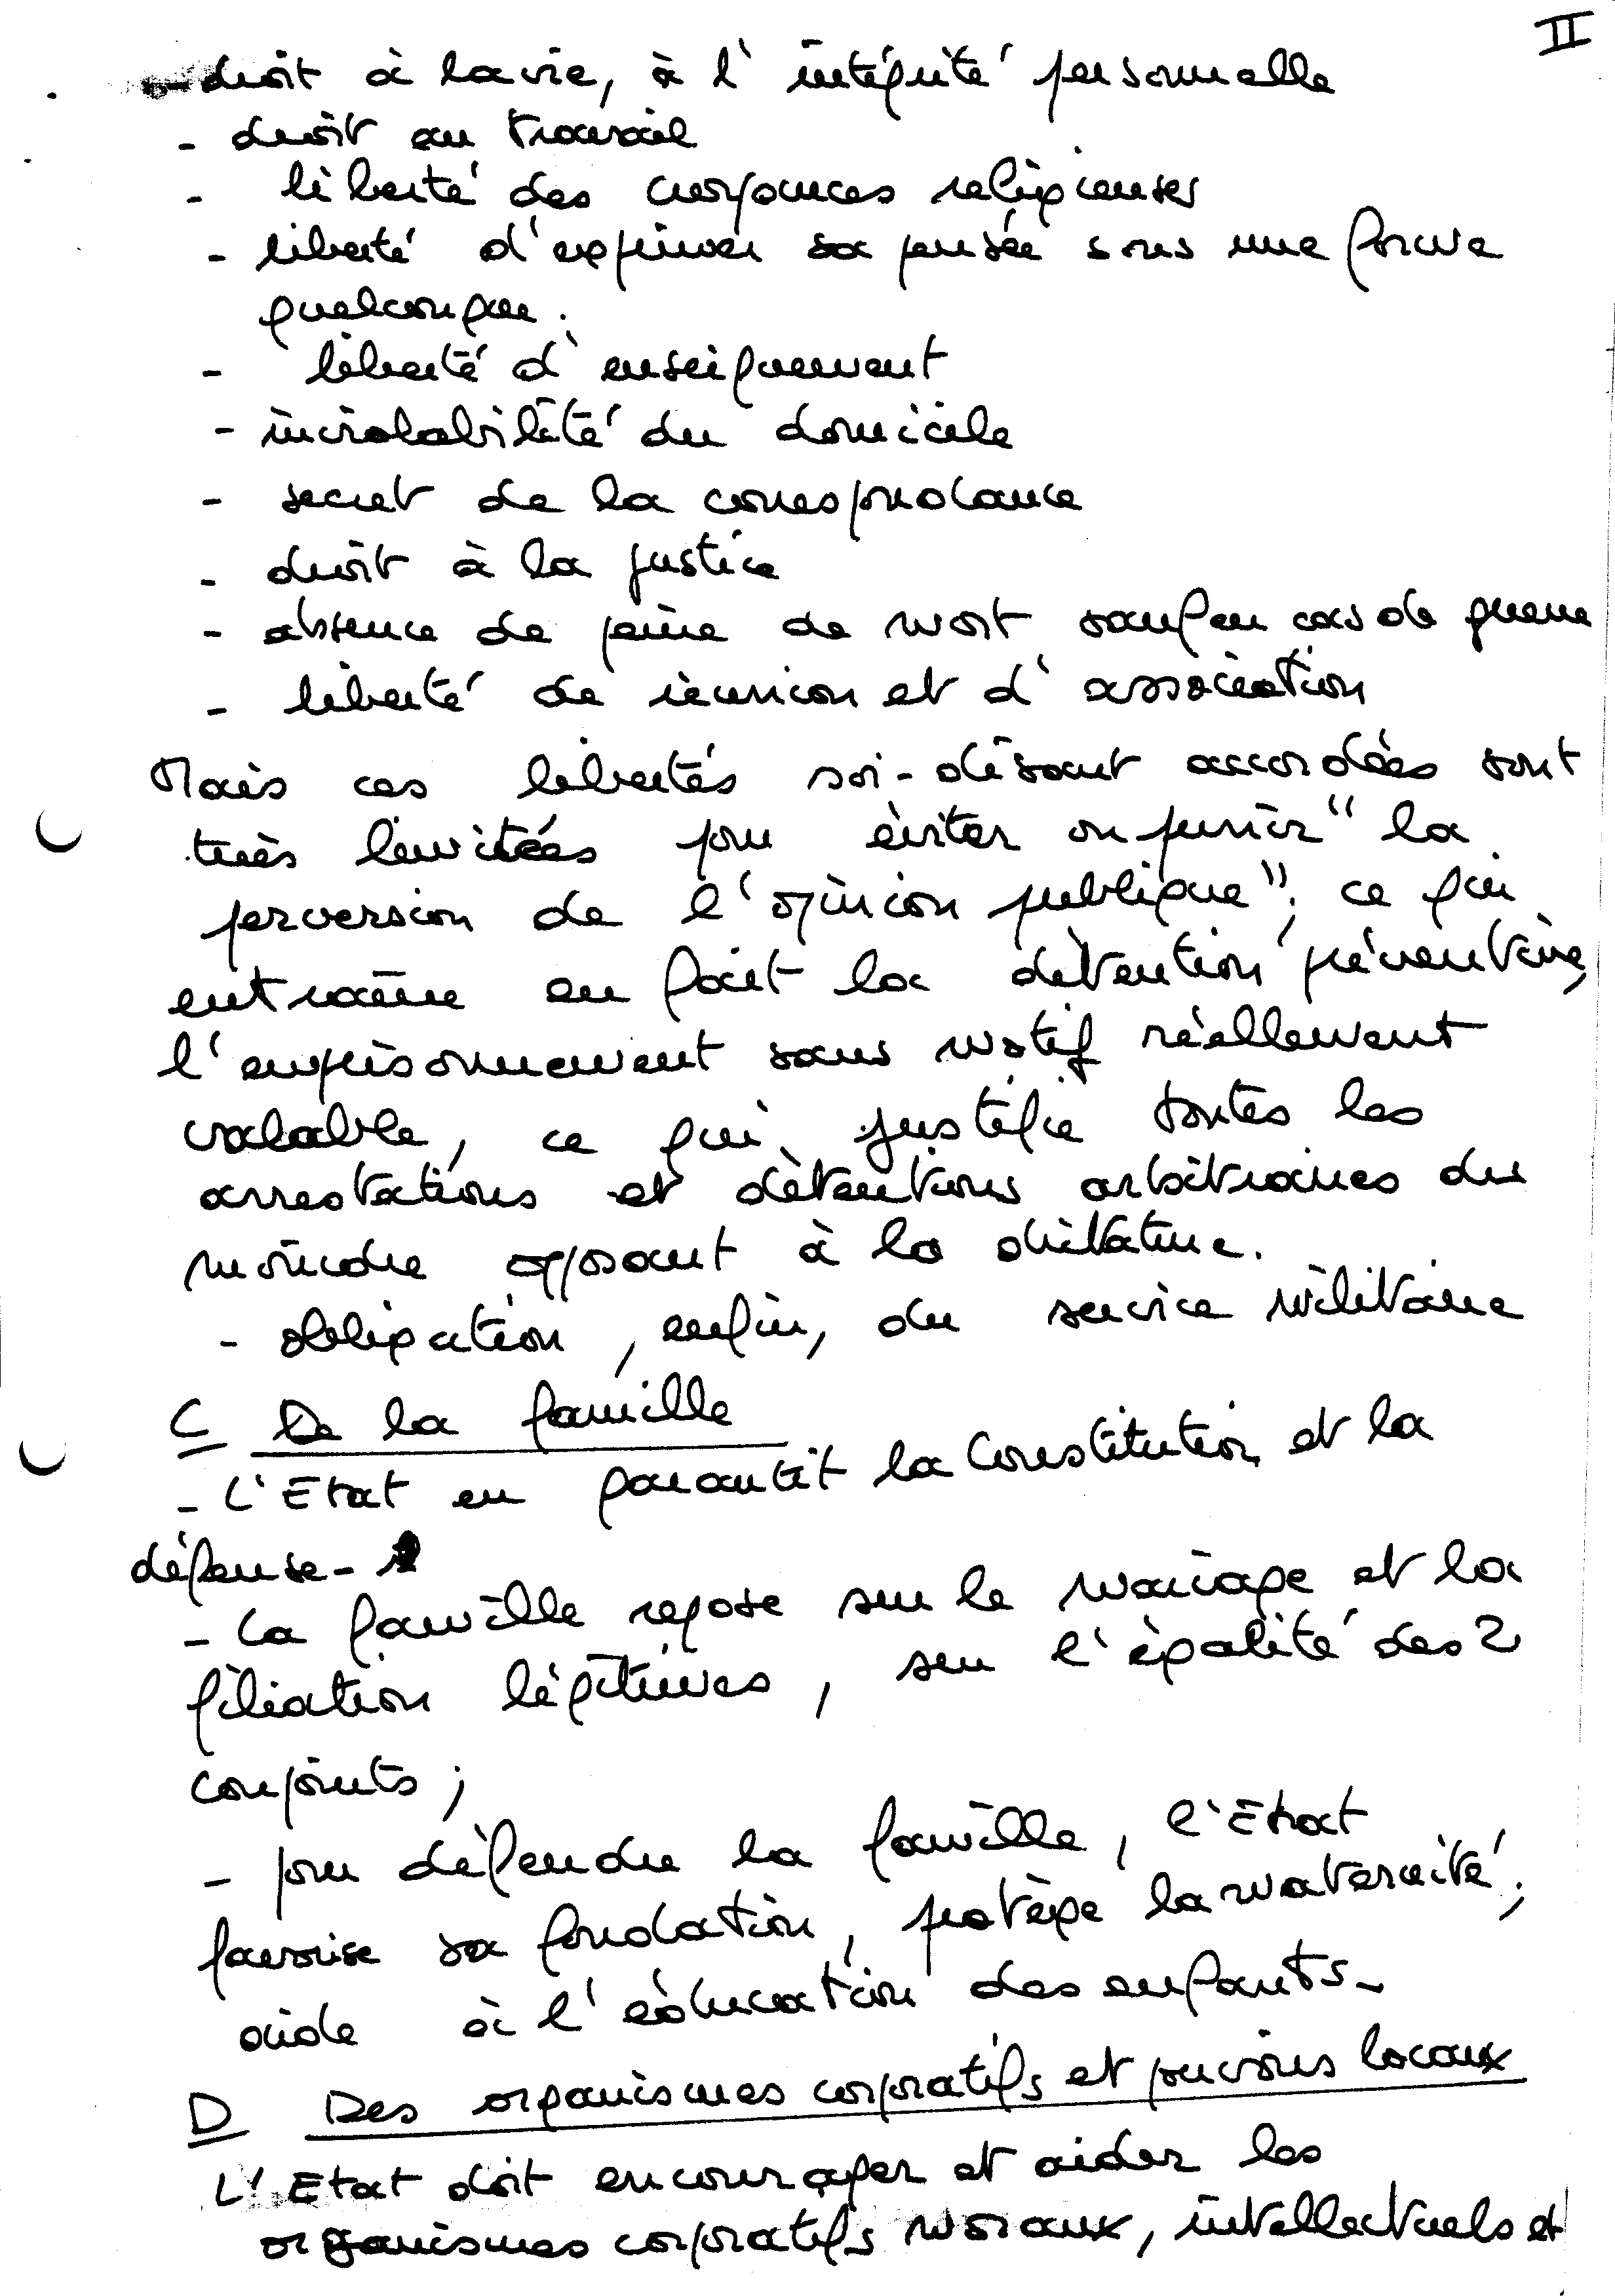 II
- droit à la vie, à l'intégrité personnelle
- droit au travail
- liberté des croyances religieuses
- liberté d'exprimer sa pensée sous une forme
quelconque.
- liberté d'enseignement
- inviolabilité du domicile
- secret de la correspondance
- droit à la justice
- absence de peine de mort sauf en cas de guerre
- liberté de réunion et d'association
Mais ces libertés soi-disant accordées sont
très limitées pour éviter ou punir "la
perversion de l'opinion publique"; ce qui
entraîne en fait la détention préventive,
l'emprisonnement sans motif réellement
valable, ce qui justifie toutes les
arrestations et détentions arbitraires du
moindre opposant à la dictature.
- obligation, enfin, du service militaire
C De la famille
- L'Etat en garantit la Constitution et la
défense-
- La famille repose sur le mariage et la
filiation légitimes, sur l'égalité des 2
conjoints;
- pour défendre la famille, l'Etat
favorise sa fondation, protège la maternité;
aide à l'éducation des enfants-
D Des organismes corporatifs et pouvoirs locaux
L'Etat doit encourager et aider les
organismes corporatifs moraux, intellectuels et